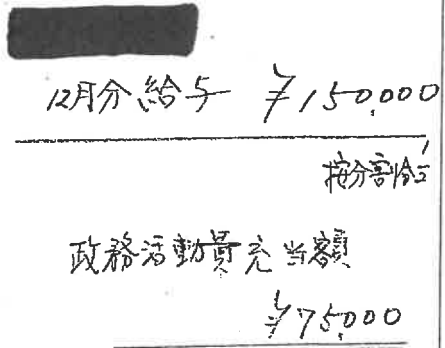 12月分給与 ¥150,000
按分割合1/2
政務活動費充当額
¥75,000